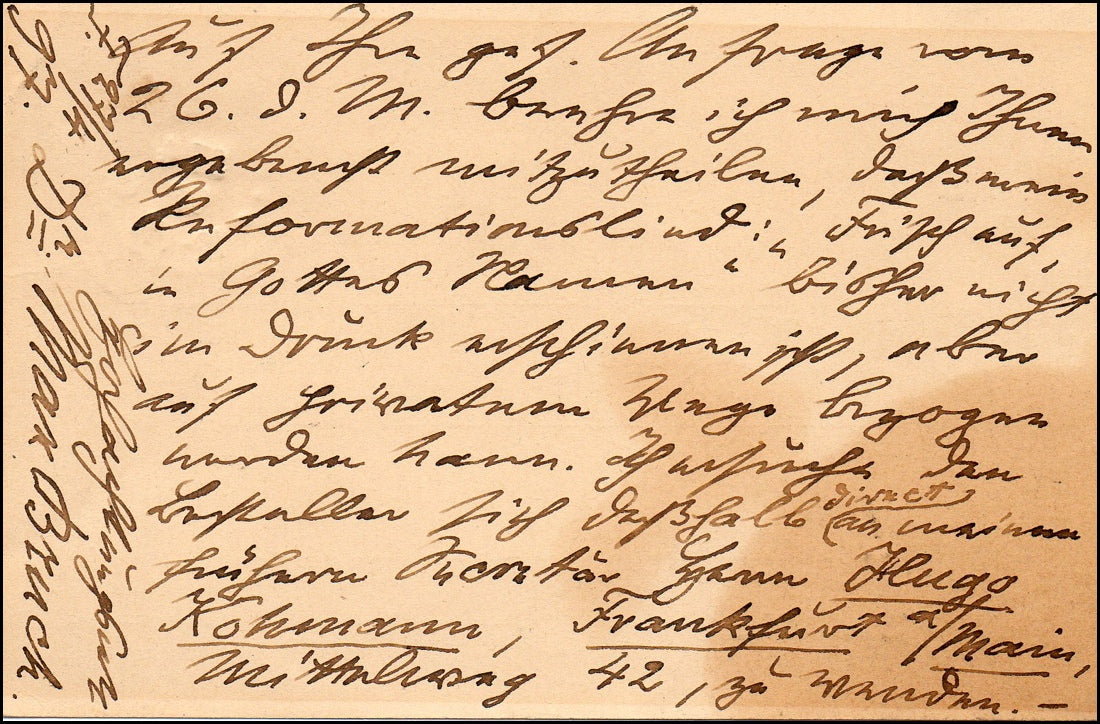 Auf Ihre gef. Anfrage vom
26. d. M. beehre ich mich Ihnen
ergebenst mitzutheilen, daß mein
Reformationslied: „Frisch auf,
in Gottes Namen“ bisher nicht
im Druck erschienen ist, aber
auf privatem Wege bezogen
werden kann. Ich ersuche den
Besteller sich deßhalb direct an meinen
frühern Secretär Herrn Hugo
Kohmann, Frankfurt a/Main,
Mittelweg 42, zu wenden. —
27/4
93.
Hochachtungsvoll
Dr. Max Bruch.